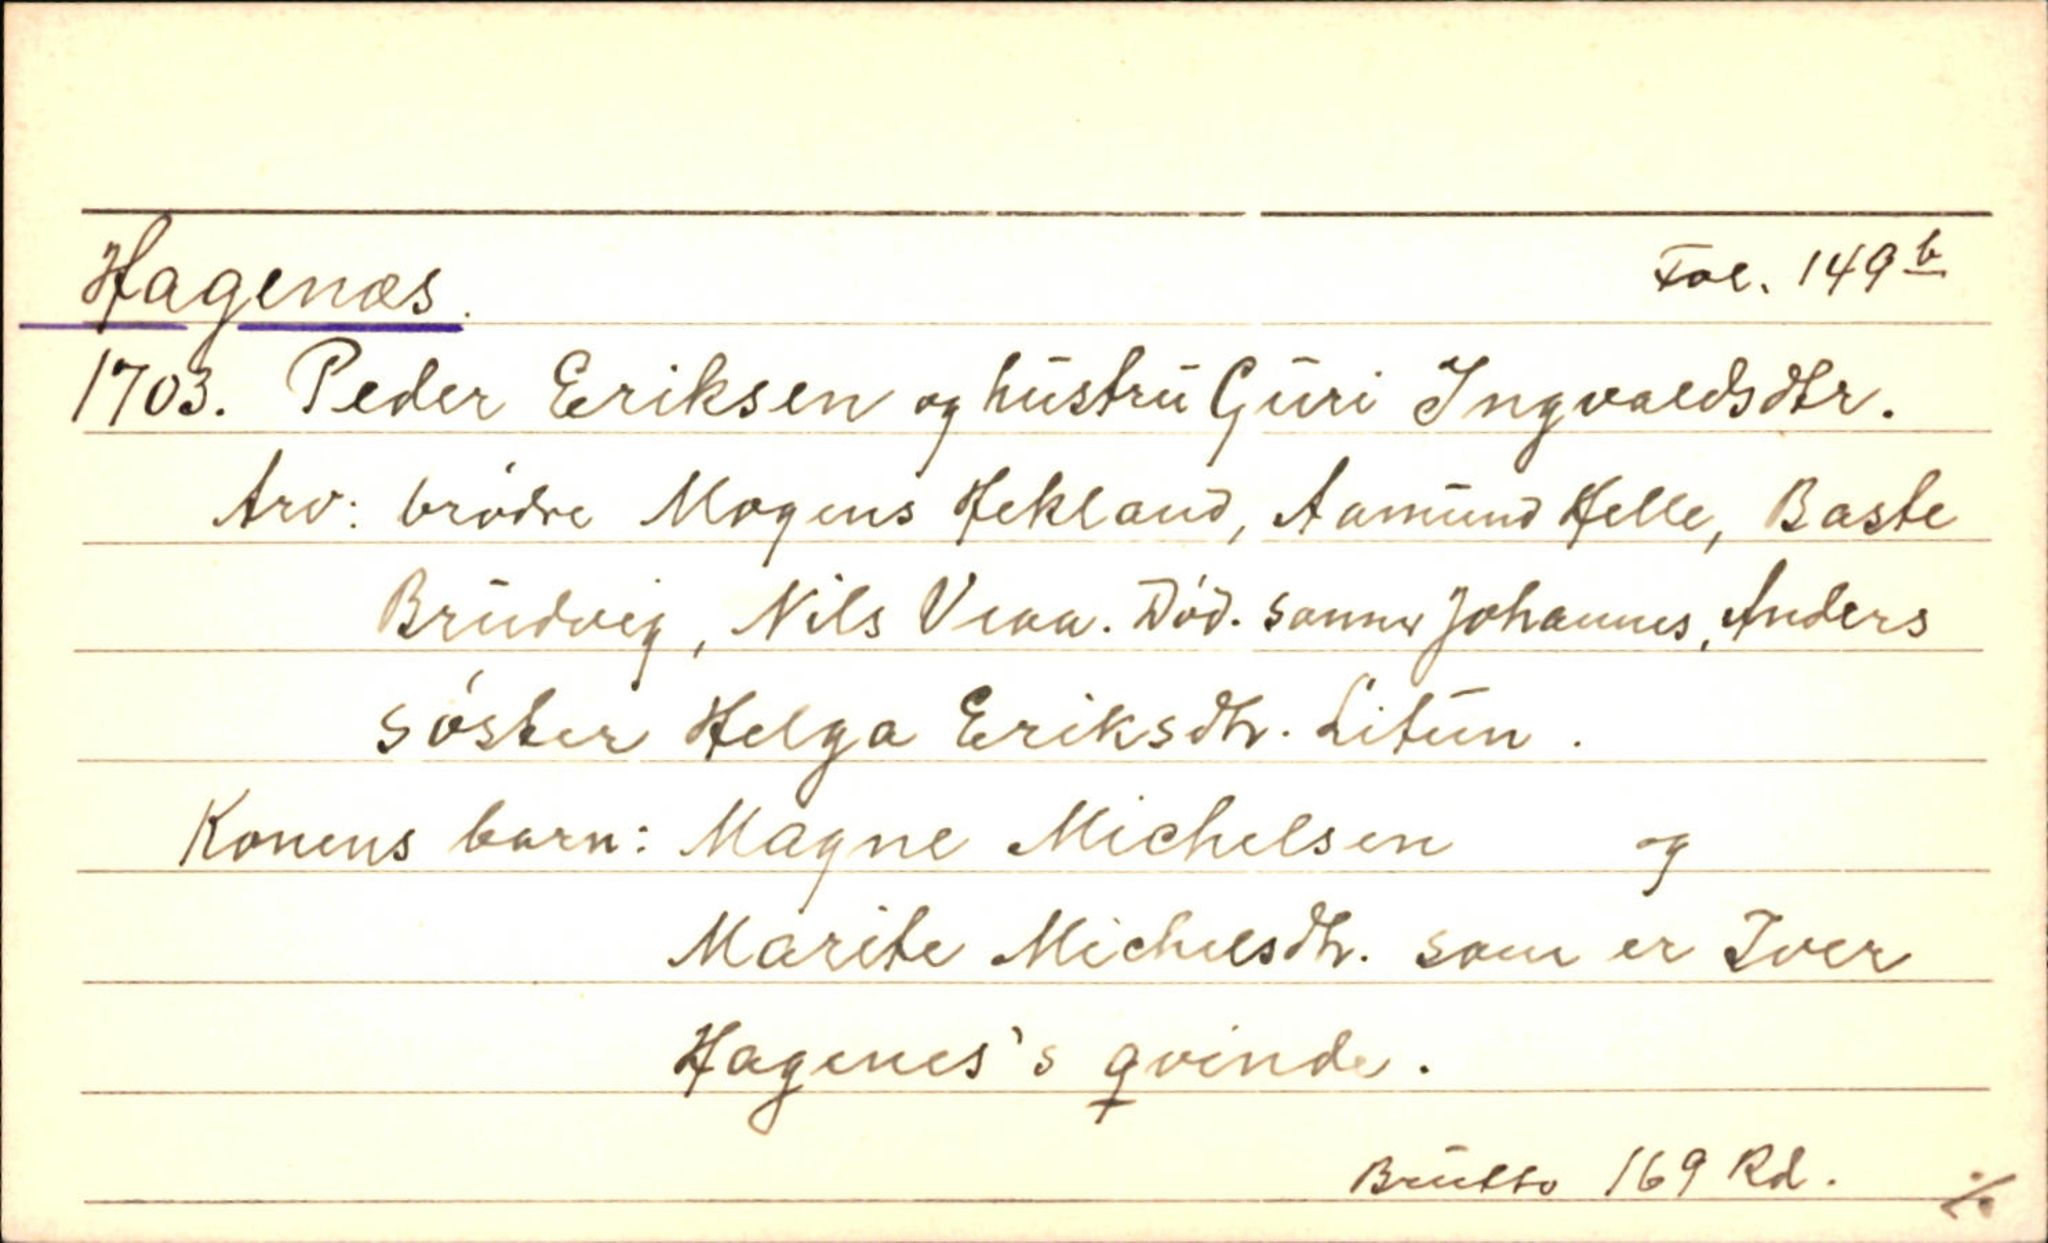 Hagenæs. Fol. 149 b
1703. Peder Eriksen og hustru Guri Ingvaldsdtr.
Arv: brødre Mogens Hekland, Aamund Helle, Baste
Brudvig, Nils Veaa. Død. Sønner Johannes, Anders
søster Helga Eriksdtr. Litun.
Konens barn: Magne Michelsen og
Marite Michelsdtr. som er Iver
Hagenes's qvinde.
Brutto 169 Rd. ./.